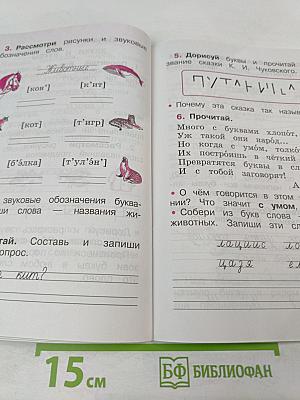 3. Рассмотри рисунки и звуковые
обозначения слов.
Животные
[кон'] [к'ит]
[кот] [т'игр]
[б'елка] [т'ул'эн']
звуковые обозначения буква-
ши слова — названия жи-
тай. Составь и запиши
опрос.
кит?
5. Дорисуй буквы и прочитай
звание сказки К. И. Чуковского.
Почему эта сказка так назы
6. Прочитай.
Много с буквами хлопот,
Уж такой они народ...
Но когда с умом, толко
Их построишь в чёткий
Превратятся буквы в сл
И с тобой заговорят!
• О чём говорится в этом
нии? Что значит с умом,
• Собери из букв слова
животных. Запиши эти сл
15 см
БФ БИБЛИОФАН